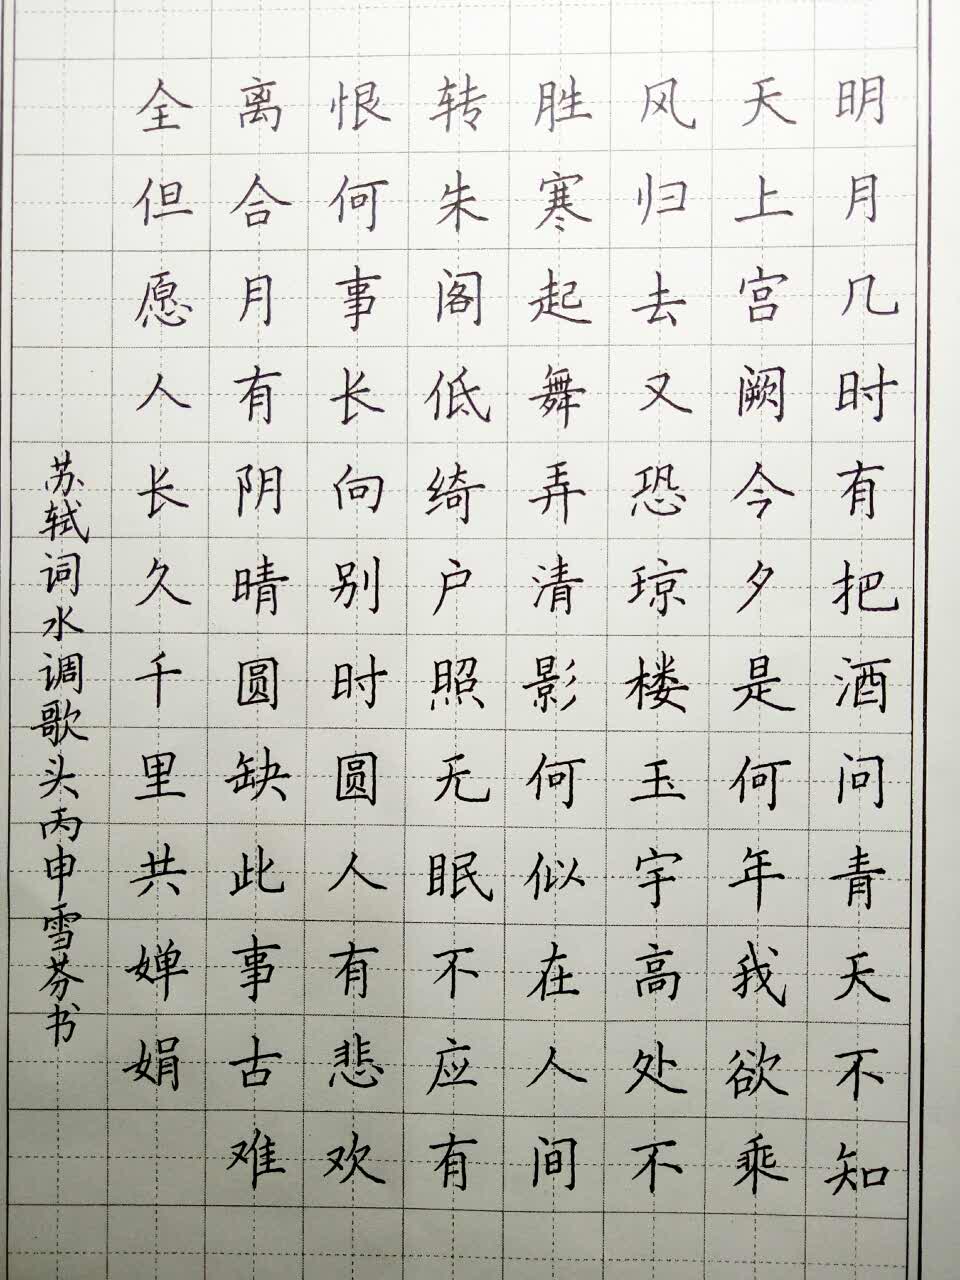 明月几时有把酒问青天不知
天上宫阙今夕是何年我欲乘
风归去又恐琼楼玉宇高处不
胜寒起舞弄清影何似在人间
转朱阁低绮户照无眠不应有
恨何事长向别时圆人有悲欢
离合月有阴晴圆缺此事古难
全但愿人长久千里共婵娟
苏轼词水调歌头丙申雪芬书